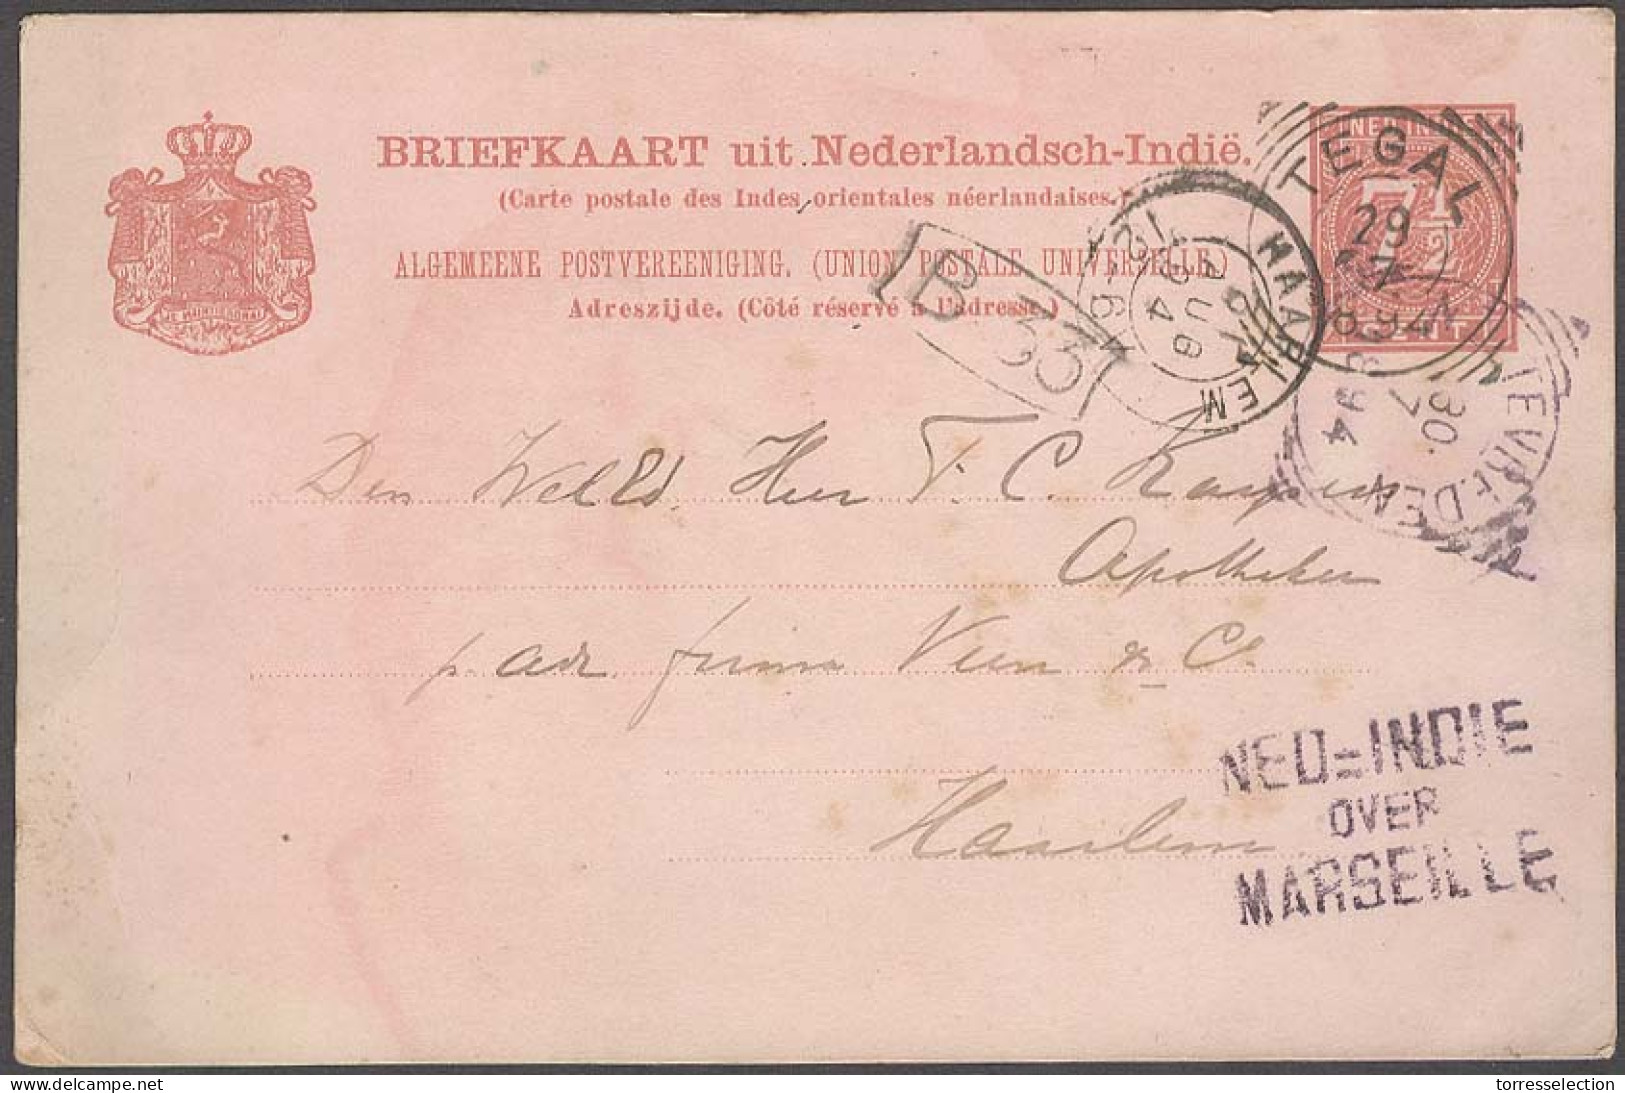 BRIEFKAART uit Nederlandsch-Indië.
(Carte postale des Indes orientales néerlandaises.)
ALGEMEENE POSTVEREENIGING. (UNION POSTALE UNIVERSELLE.)
Adreszijde. (Côté réservé à l'adresse.)
JE MAINTIENDRAI
NED-INDIE
7½
CENT
TEGAL
29
7
94
HAARLEM
AUG
94
B 33
WELTEVREDEN
30
7
94
Den WelEd Heer F. C.
Apotheker
p. adr. firma Veen & Co
Haarlem
NED=INDIE
OVER
MARSEILLE
delcampe.net
torresselection